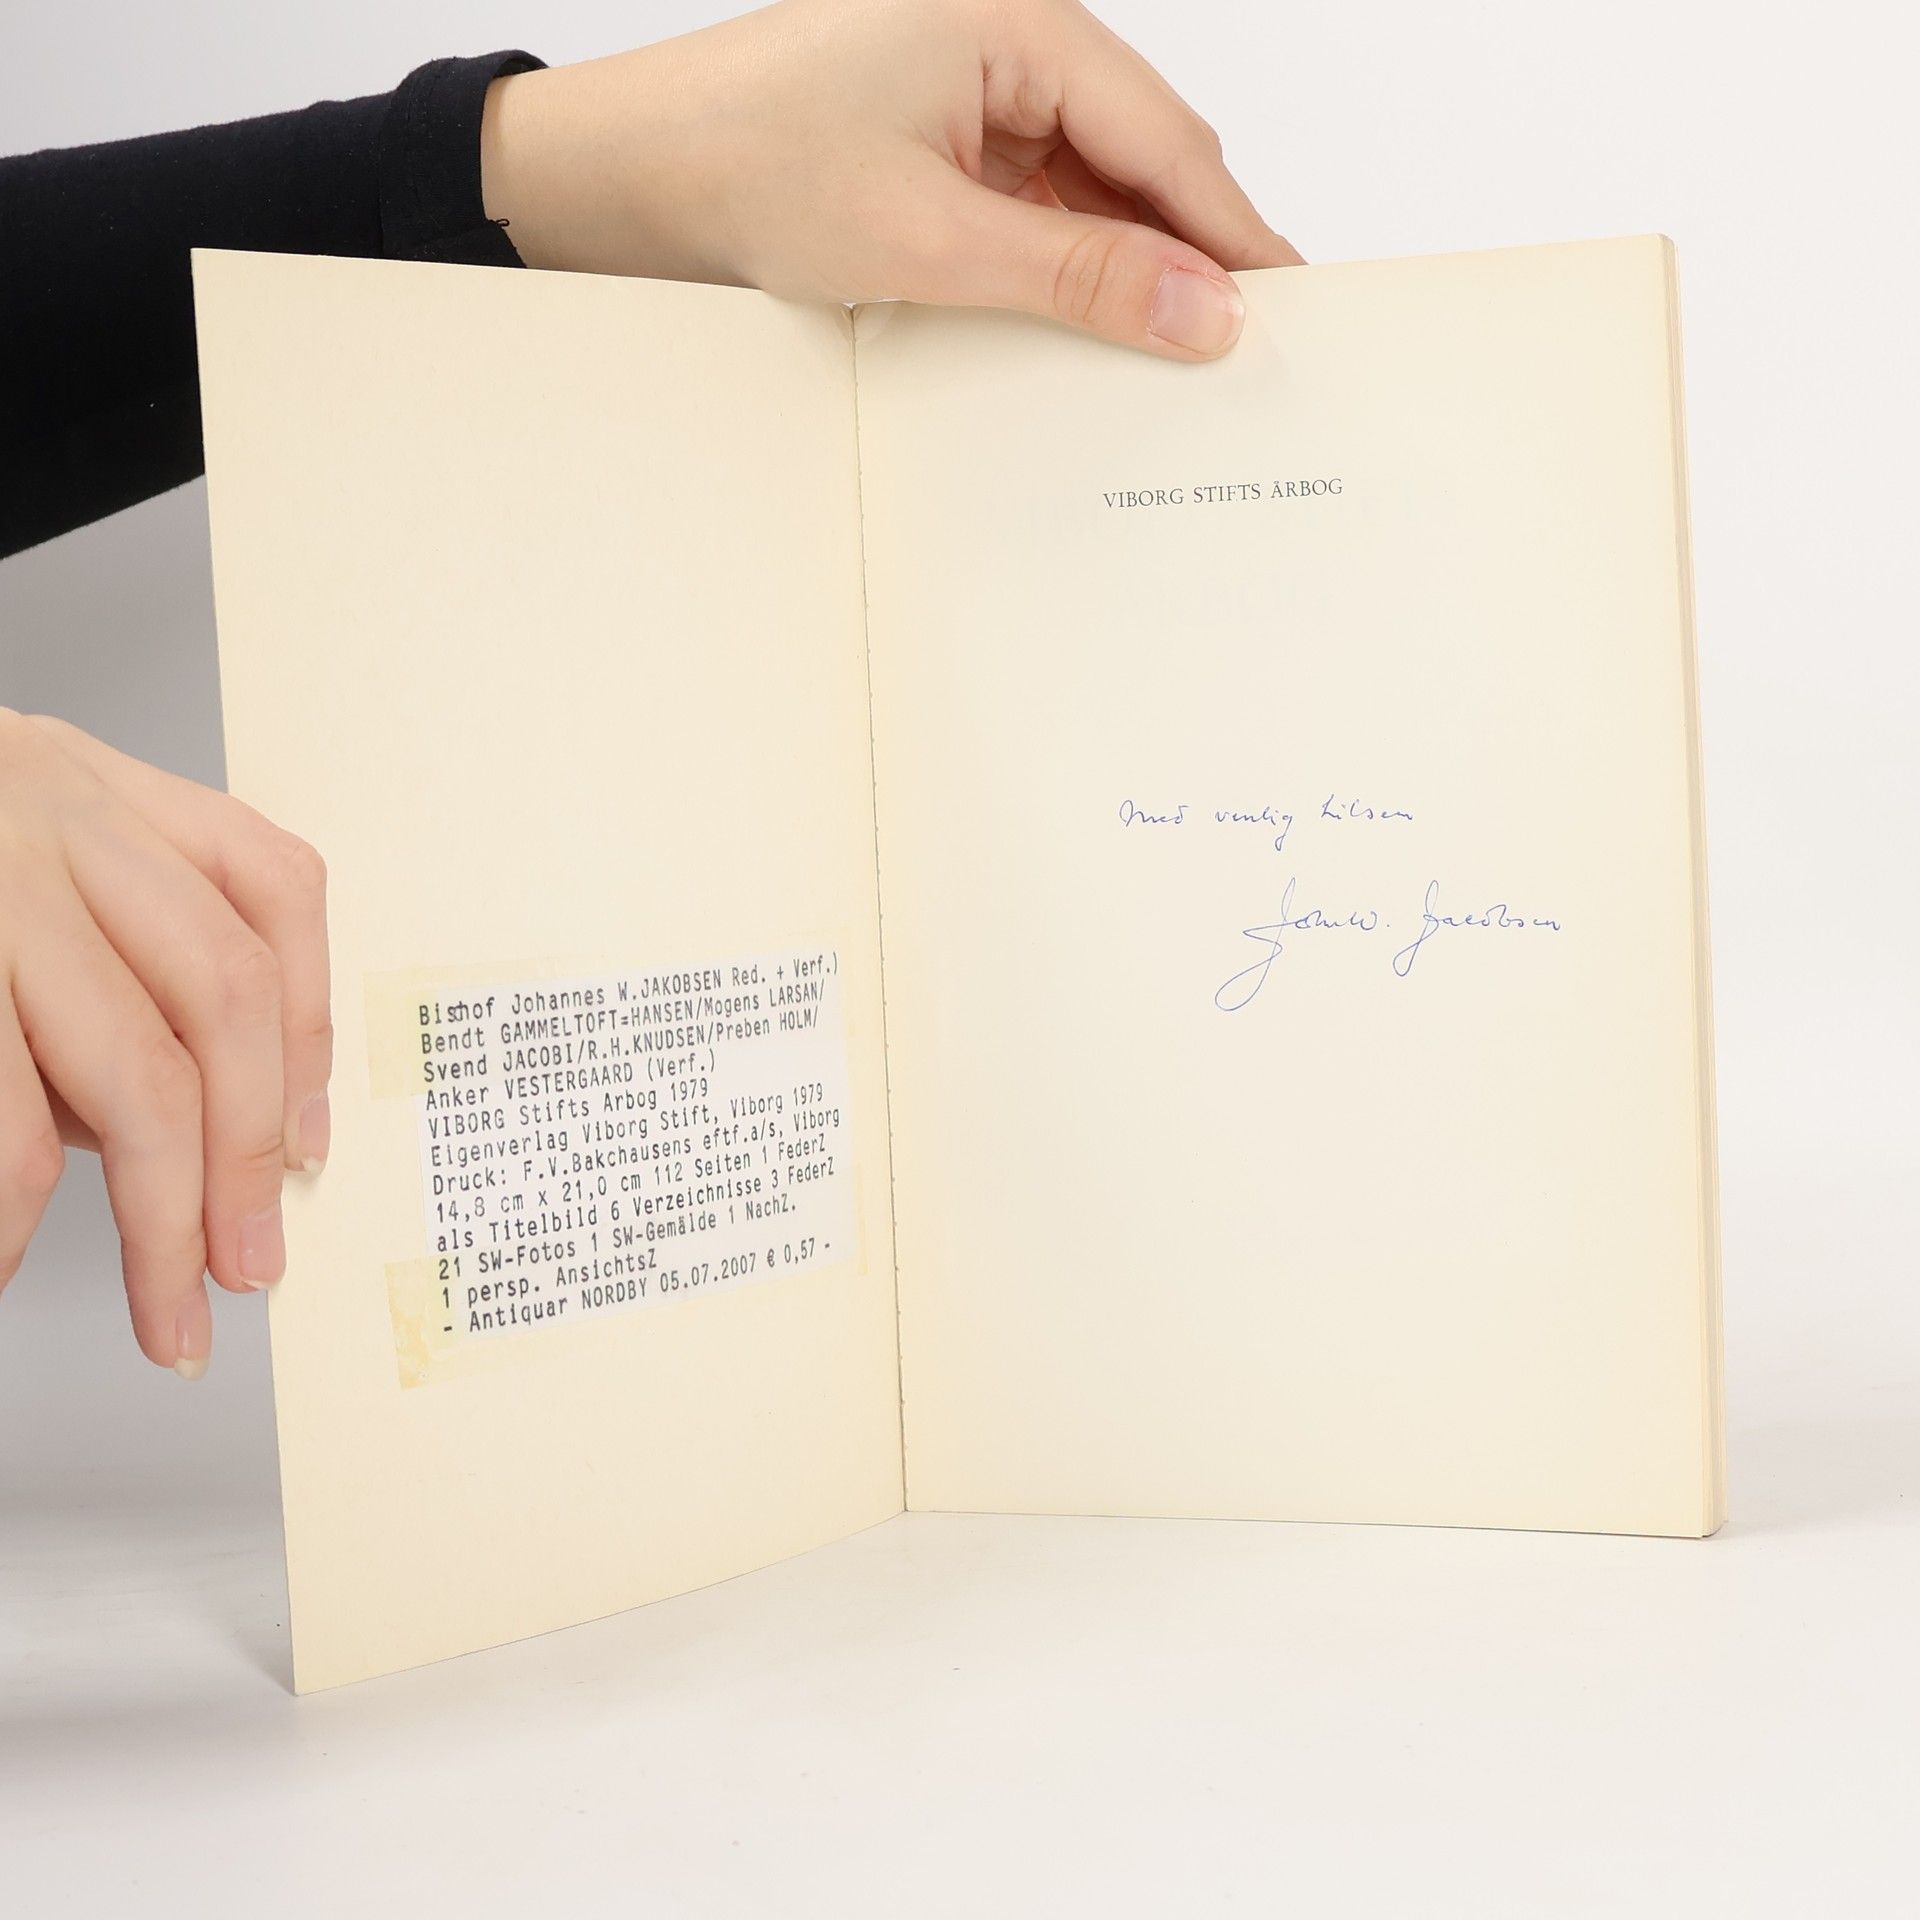 Bischof Johannes W.JAKOBSEN Red. + Verf.)
Bendt GAMMELTOFT=HANSEN/Mogens LARSAN/
Svend JACOBI/R.H.KNUDSEN/Preben HOLM/
Anker VESTERGAARD (Verf.)
VIBORG Stifts Arbog 1979
Eigenverlag Viborg Stift, Viborg 1979
Druck: F.V.Bakchausens eftf.a/s, Viborg
14,8 cm x 21,0 cm 112 Seiten 1 FederZ
als Titelbild 6 Verzeichnisse 3 FederZ
21 SW-Fotos 1 SW-Gemälde 1 NachZ.
1 persp. AnsichtsZ
- Antiquar NORDBY 05.07.2007 € 0,57 -
VIBORG STIFTS ÅRBOG
Med venlig hilsen
Johs W. Jacobsen